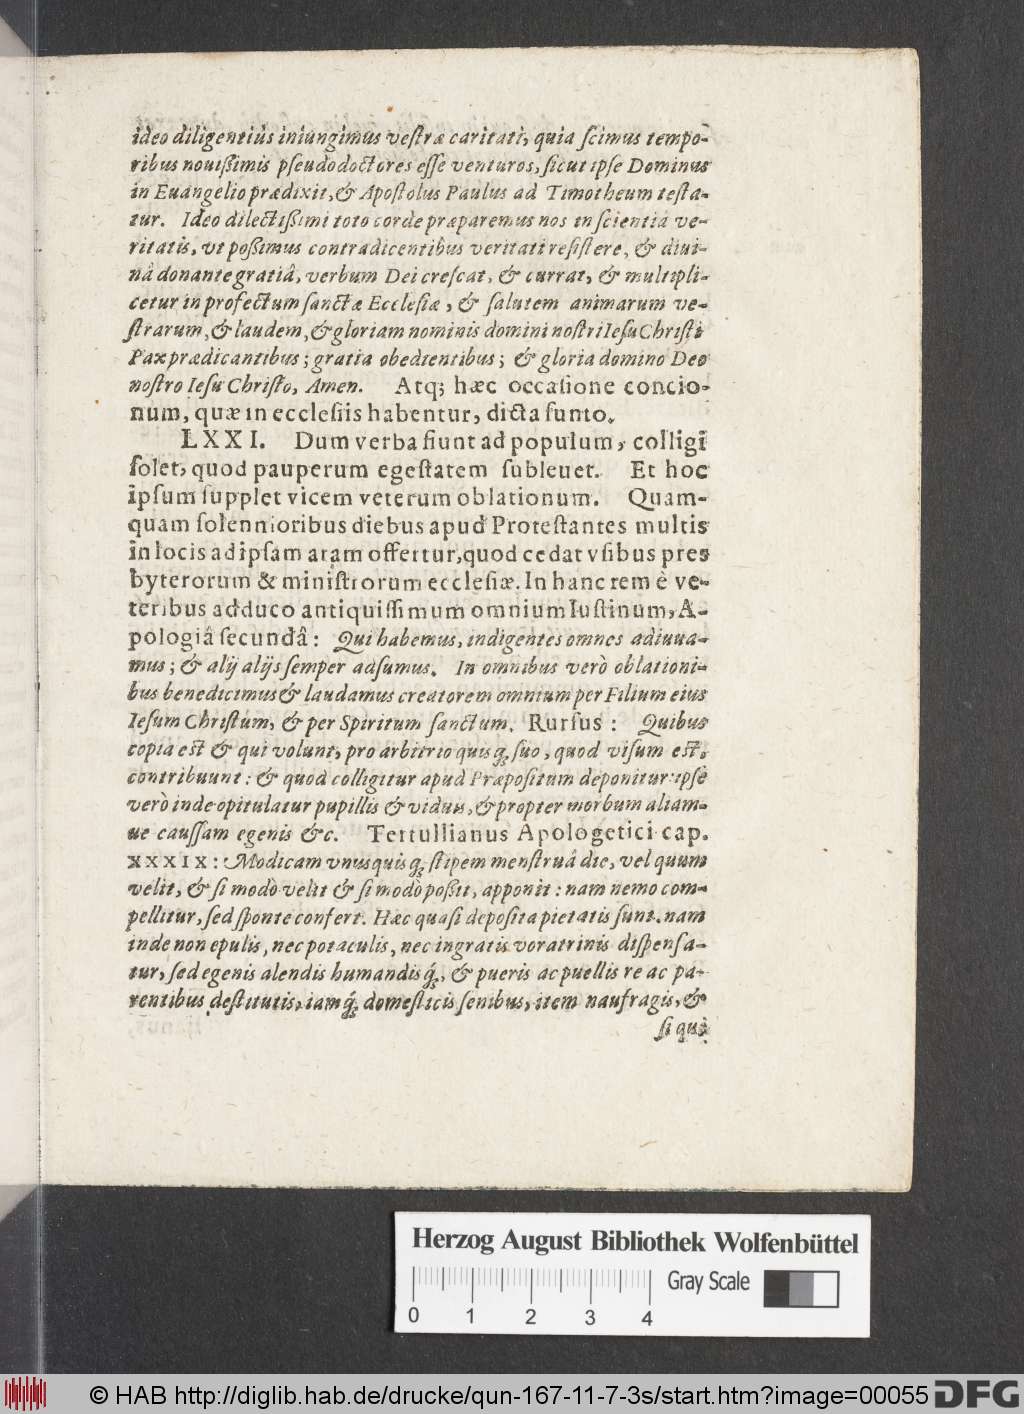 ideo diligentiùs iniungimus vestræ caritati, quia scimus tempo-
ribus nouißimis pseudodoctores esse venturos, sicut ipse Dominus
in Euangelio prædixit, & Apostolus Paulus ad Timotheum testa-
tur. Ideo dilectißimi toto corde præparemus nos in scientiâ ve-
ritatis, vt poßimus contradicentibus veritati resistere, & diui-
nâ donante gratiâ, verbum Dei crescat, & currat, & multipli-
cetur in profectum sanctæ Ecclesiæ, & salutem animarum ve-
strarum, & laudem, & gloriam nominis domini nostri Iesu Christi
Pax prædicantibus; gratia obedientibus; & gloria domino Deo
nostro Iesu Christo, Amen. Atq; hæc occasione concio-
num, quæ in ecclesiis habentur, dicta sunto.
LXXI. Dum verba fiunt ad populum, colligi
solet, quod pauperum egestatem subleuet. Et hoc
ipsum supplet vicem veterum oblationum. Quam-
quam solennioribus diebus apud Protestantes multis
in locis ad ipsam aram offertur, quod cedat vsibus pres
byterorum & ministrorum ecclesiæ. In hanc rem è ve-
teribus adduco antiquissimum omnium Iustinum, A-
pologiâ secundâ: Qui habemus, indigentes omnes adiuua-
mus; & alij alijs semper adsumus. In omnibus verò oblationi-
bus benedicimus & laudamus creatorem omnium per Filium eius
Iesum Christum, & per Spiritum sanctum. Rursus: Quibus
copia est & qui volunt, pro arbitrio quisq; suo, quod visum est,
contribuunt: & quod colligitur apud Præpositum deponitur: ipse
verò inde opitulatur pupillis & viduis, & propter morbum aliam-
ue caussam egenis &c. Tertullianus Apologetici cap.
XXXIX: Modicam vnusquisq; stipem menstruâ die, vel quum
velit, & si modò velit & si modò poßit, apponit: nam nemo com-
pellitur, sed sponte confert. Hæc quasi deposita pietatis sunt. nam
inde non epulis, nec potaculis, nec ingratis voratrinis dispensa-
tur, sed egenis alendis humandisq́;, & pueris ac puellis re ac pa-
rentibus destitutis, iamq́; domesticis senibus, item naufragis, &
si qui
Herzog August Bibliothek Wolfenbüttel
Gray Scale
0 1 2 3 4
© HAB http://diglib.hab.de/drucke/qun-167-11-7-3s/start.htm?image=00055
DFG